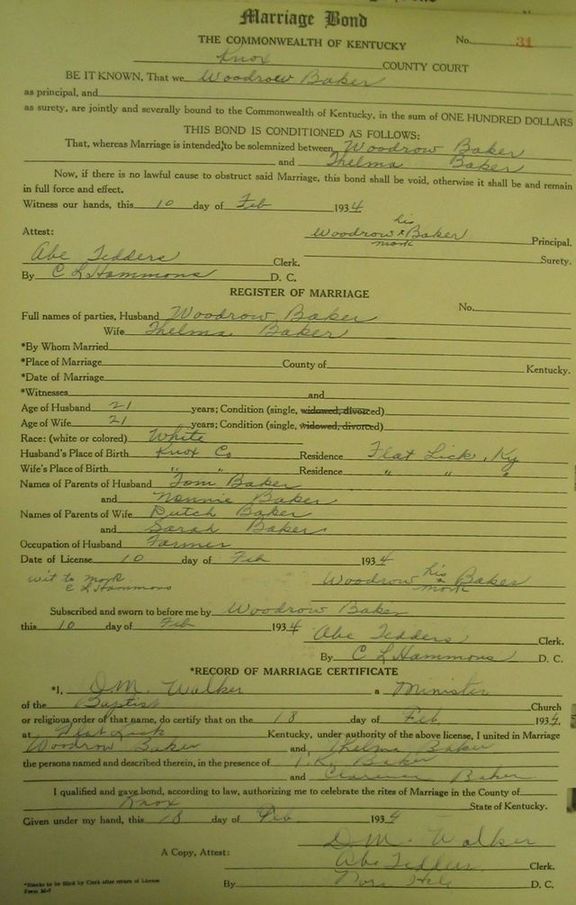 Marriage Bond
THE COMMONWEALTH OF KENTUCKY No. 31
Knox COUNTY COURT
BE IT KNOWN, That we Woodrow Baker
as principal, and
as surety, are jointly and severally bound to the Commonwealth of Kentucky, in the sum of ONE HUNDRED DOLLARS
THIS BOND IS CONDITIONED AS FOLLOWS:
That, whereas Marriage is intended to be solemnized between Woodrow Baker
and Thelma Baker
Now, if there is no lawful cause to obstruct said Marriage, this bond shall be void, otherwise it shall be and remain
in full force and effect.
Witness our hands, this 10 day of Feb 1934
his
Attest: Woodrow x Baker Principal.
mark
Abe Tedders Clerk. Surety.
By C L Hammons D. C.
REGISTER OF MARRIAGE
Full names of parties, Husband Woodrow Baker No.
Wife Thelma Baker
*By Whom Married
*Place of Marriage County of Kentucky.
*Date of Marriage
*Witnesses and
Age of Husband 21 years; Condition (single, widowed, divorced)
Age of Wife 21 years; Condition (single, widowed, divorced)
Race: (white or colored) White
Husband's Place of Birth Knox Co Residence Flat Lick, Ky
Wife's Place of Birth " " Residence " " "
Names of Parents of Husband Tom Baker
and Nannie Baker
Names of Parents of Wife Dutch Baker
and Sarah Baker
Occupation of Husband Farmer
Date of License 10 day of Feb 1934
wit to mark
C L Hammons
Woodrow his x mark Baker
Subscribed and sworn to before me by Woodrow Baker
this 10 day of Feb 1934 Abe Tedders Clerk.
By C L Hammons D. C.
*RECORD OF MARRIAGE CERTIFICATE
*I, D.M. Walker a Minister
of the Baptist Church
or religious order of that name, do certify that on the 18 day of Feb 1934.
at Flat Lick Kentucky, under authority of the above license, I united in Marriage
Woodrow Baker and Thelma Baker
the persons named and described therein, in the presence of Baker
and Clarence Baker
I qualified and gave bond, according to law, authorizing me to celebrate the rites of Marriage in the County of
Knox State of Kentucky.
Given under my hand, this 18 day of Feb 1934
D. M. Walker
A Copy, Attest: Abe Tedders Clerk.
By D. C.
*Blanks to be filled by Clerk after return of License